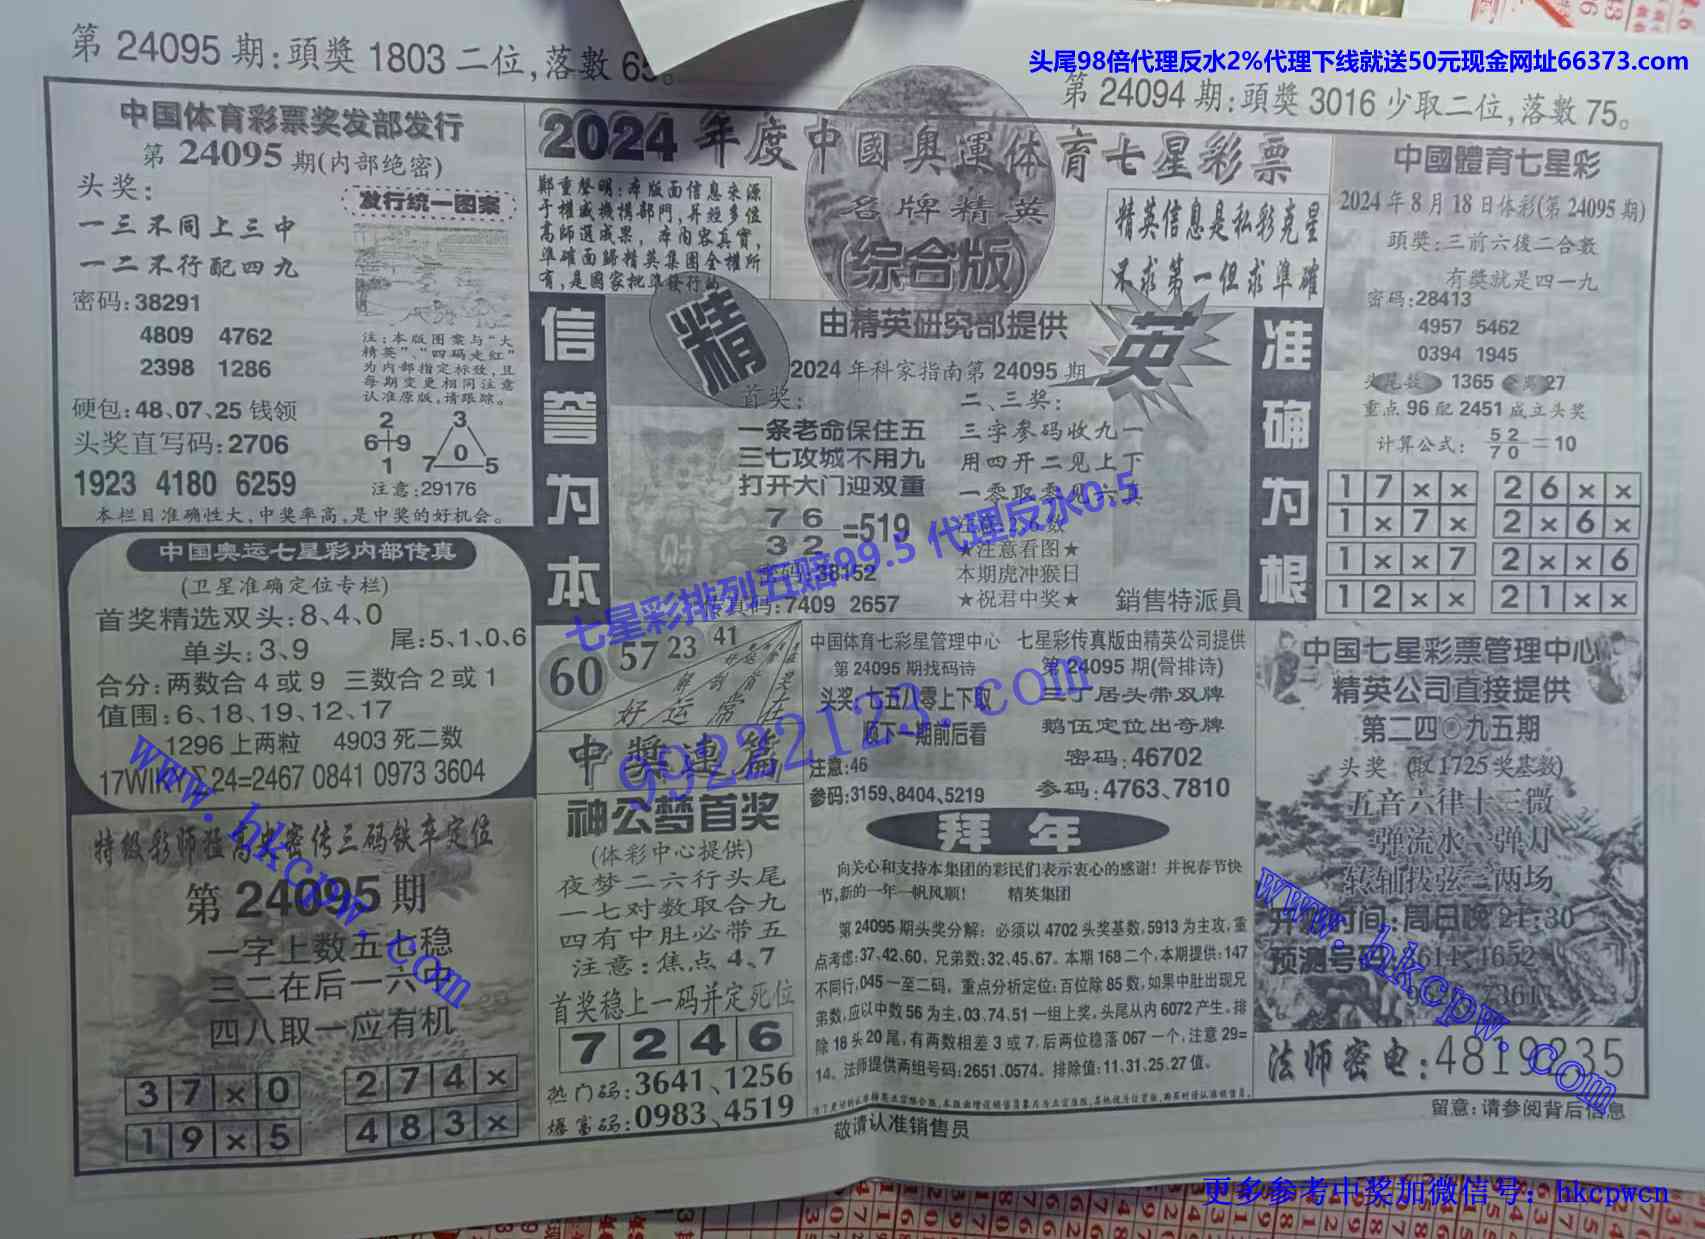 头尾98倍代理反水2%代理下线就送50元现金网址66373.com
第 24095 期:頭獎 1803 二位,落數 65。
第 24094 期:頭獎 3016 少取二位,落數 75。
中国体育彩票奖发部发行
第 24095 期(内部绝密)
头奖:
一三不同上三中
一二不行配四九
密码:38291
4809 4762
2398 1286
硬包:48、07、25 钱领
头奖直写码:2706
1923 4180 6259
发行统一图案
注:本版图案与“大
精英”、“四码走红”
为内部指定标放,且
每期变更相同注意
认准原版,请跟踪。
2
6+9
1
3
0
7 5
注意:29176
本栏目准确性大,中奖率高,是中奖的好机会。
2024 年度中國奥運体育七星彩票
鄭重聲明:本版面信息来源
于權威機構部門,并经多位
高師選成果，本内容真實,
準確面歸精英集團全權所
有,是國家批準發行的
名牌精英
(综合版)
精英信息是私彩克星
不求第一但求準確
中國體育七星彩
2024 年 8 月 18 日体彩(第 24095 期)
頭獎:三前六後二合數
有獎就是四一九
密码:28413
4957 5462
0394 1945
1365
27
重点 96 配 2451 成立头奖
计算公式: 5 2 / 7 0 =10
1 7 × × 2 6 × ×
1 × 7 × 2 × 6 ×
1 × × 7 2 × × 6
1 2 × × 2 1 × ×
信誉为本
精
英
准确为根
由精英研究部提供
2024 年科家指南第 24095 期
首奖:
一条老命保住五
三七攻城不用九
打开大门迎双重
7 6 / 3 2 =519
密码:38152
传真码:7409 2657
二、三奖:
三字参码收九一
用四开二见上下
★注意看图★
本期虎冲猴日
★祝君中奖★
銷售特派員
七星彩排列五赔99.5 代理反水0.5
中国奥运七星彩内部传真
(卫星准确定位专栏)
首奖精选双头:8、4、0
单头:3、9
尾:5、1、0、6
合分:两数合 4 或 9 三数合 2 或 1
值围:6、18、19、12、17
1296 上两粒 4903 死二数
24=2467 0841 0973 3604
60 57 23 41
好运常在
中獎連篇
神公梦首奖
(体彩中心提供)
夜梦二六行头尾
一七对数取合九
四有中肚必带五
注意:焦点 4、7
首奖稳上一码并定死位
7 2 4 6
热门码:3641、1256
爆富码:0983、4519
中国体育七彩星管理中心
第 24095 期找码诗
头奖:七五八零上下取
顾下一期前后看
注意:46
参码:3159、8404、5219
七星彩传真版由精英公司提供
第 24095 期(骨排诗)
三丁居头带双牌
鹅伍定位出奇牌
密码:46702
参码:4763、7810
99222123.com
拜年
向关心和支持本集团的彩民们表示衷心的感谢!并祝春节快
节,新的一年一帆风顺! 精英集团
第 24095 期头奖分解: 必须以 4702 头奖基数, 5913 为主攻,重
点考虑:37、42、60。兄弟数:32、45、67。本期 168 二个,本期提供:147
不同行,045 一至二码。重点分析定位:百位除 85 数,如果中肚出现兄
弟数,应以中数 56 为主、03、74、51 一组上奖,头尾从内 6072 产生。排
除 18 头 20 尾,有两数相差 3 或 7,后两位稳落 067 一个,注意 29=
14。法师提供两组号码:2651、0574。排除值:11、31、25、27 值。
敬请认准销售员
中国七星彩票管理中心
精英公司直接提供
第二四〇九五期
头奖:(取 1725 奖基数)
五音六律十三徽
弹流水、弹月
转轴拔弦三两场
开奖时间:周日晚 21:30
预测号码:4614、1652
7361
法师密电:4819235
留意:请参阅背后信息
特级彩师
密传三码铁车定位
第 24095 期
一字上数五七稳
三二在后一六内
四八取一应有机
3 7 × 0 2 7 4 ×
1 9 × 5 4 8 3 ×
www.hkcpw.com
www.hkcpw.com
更多参考中奖加微信号：hkcpwcn